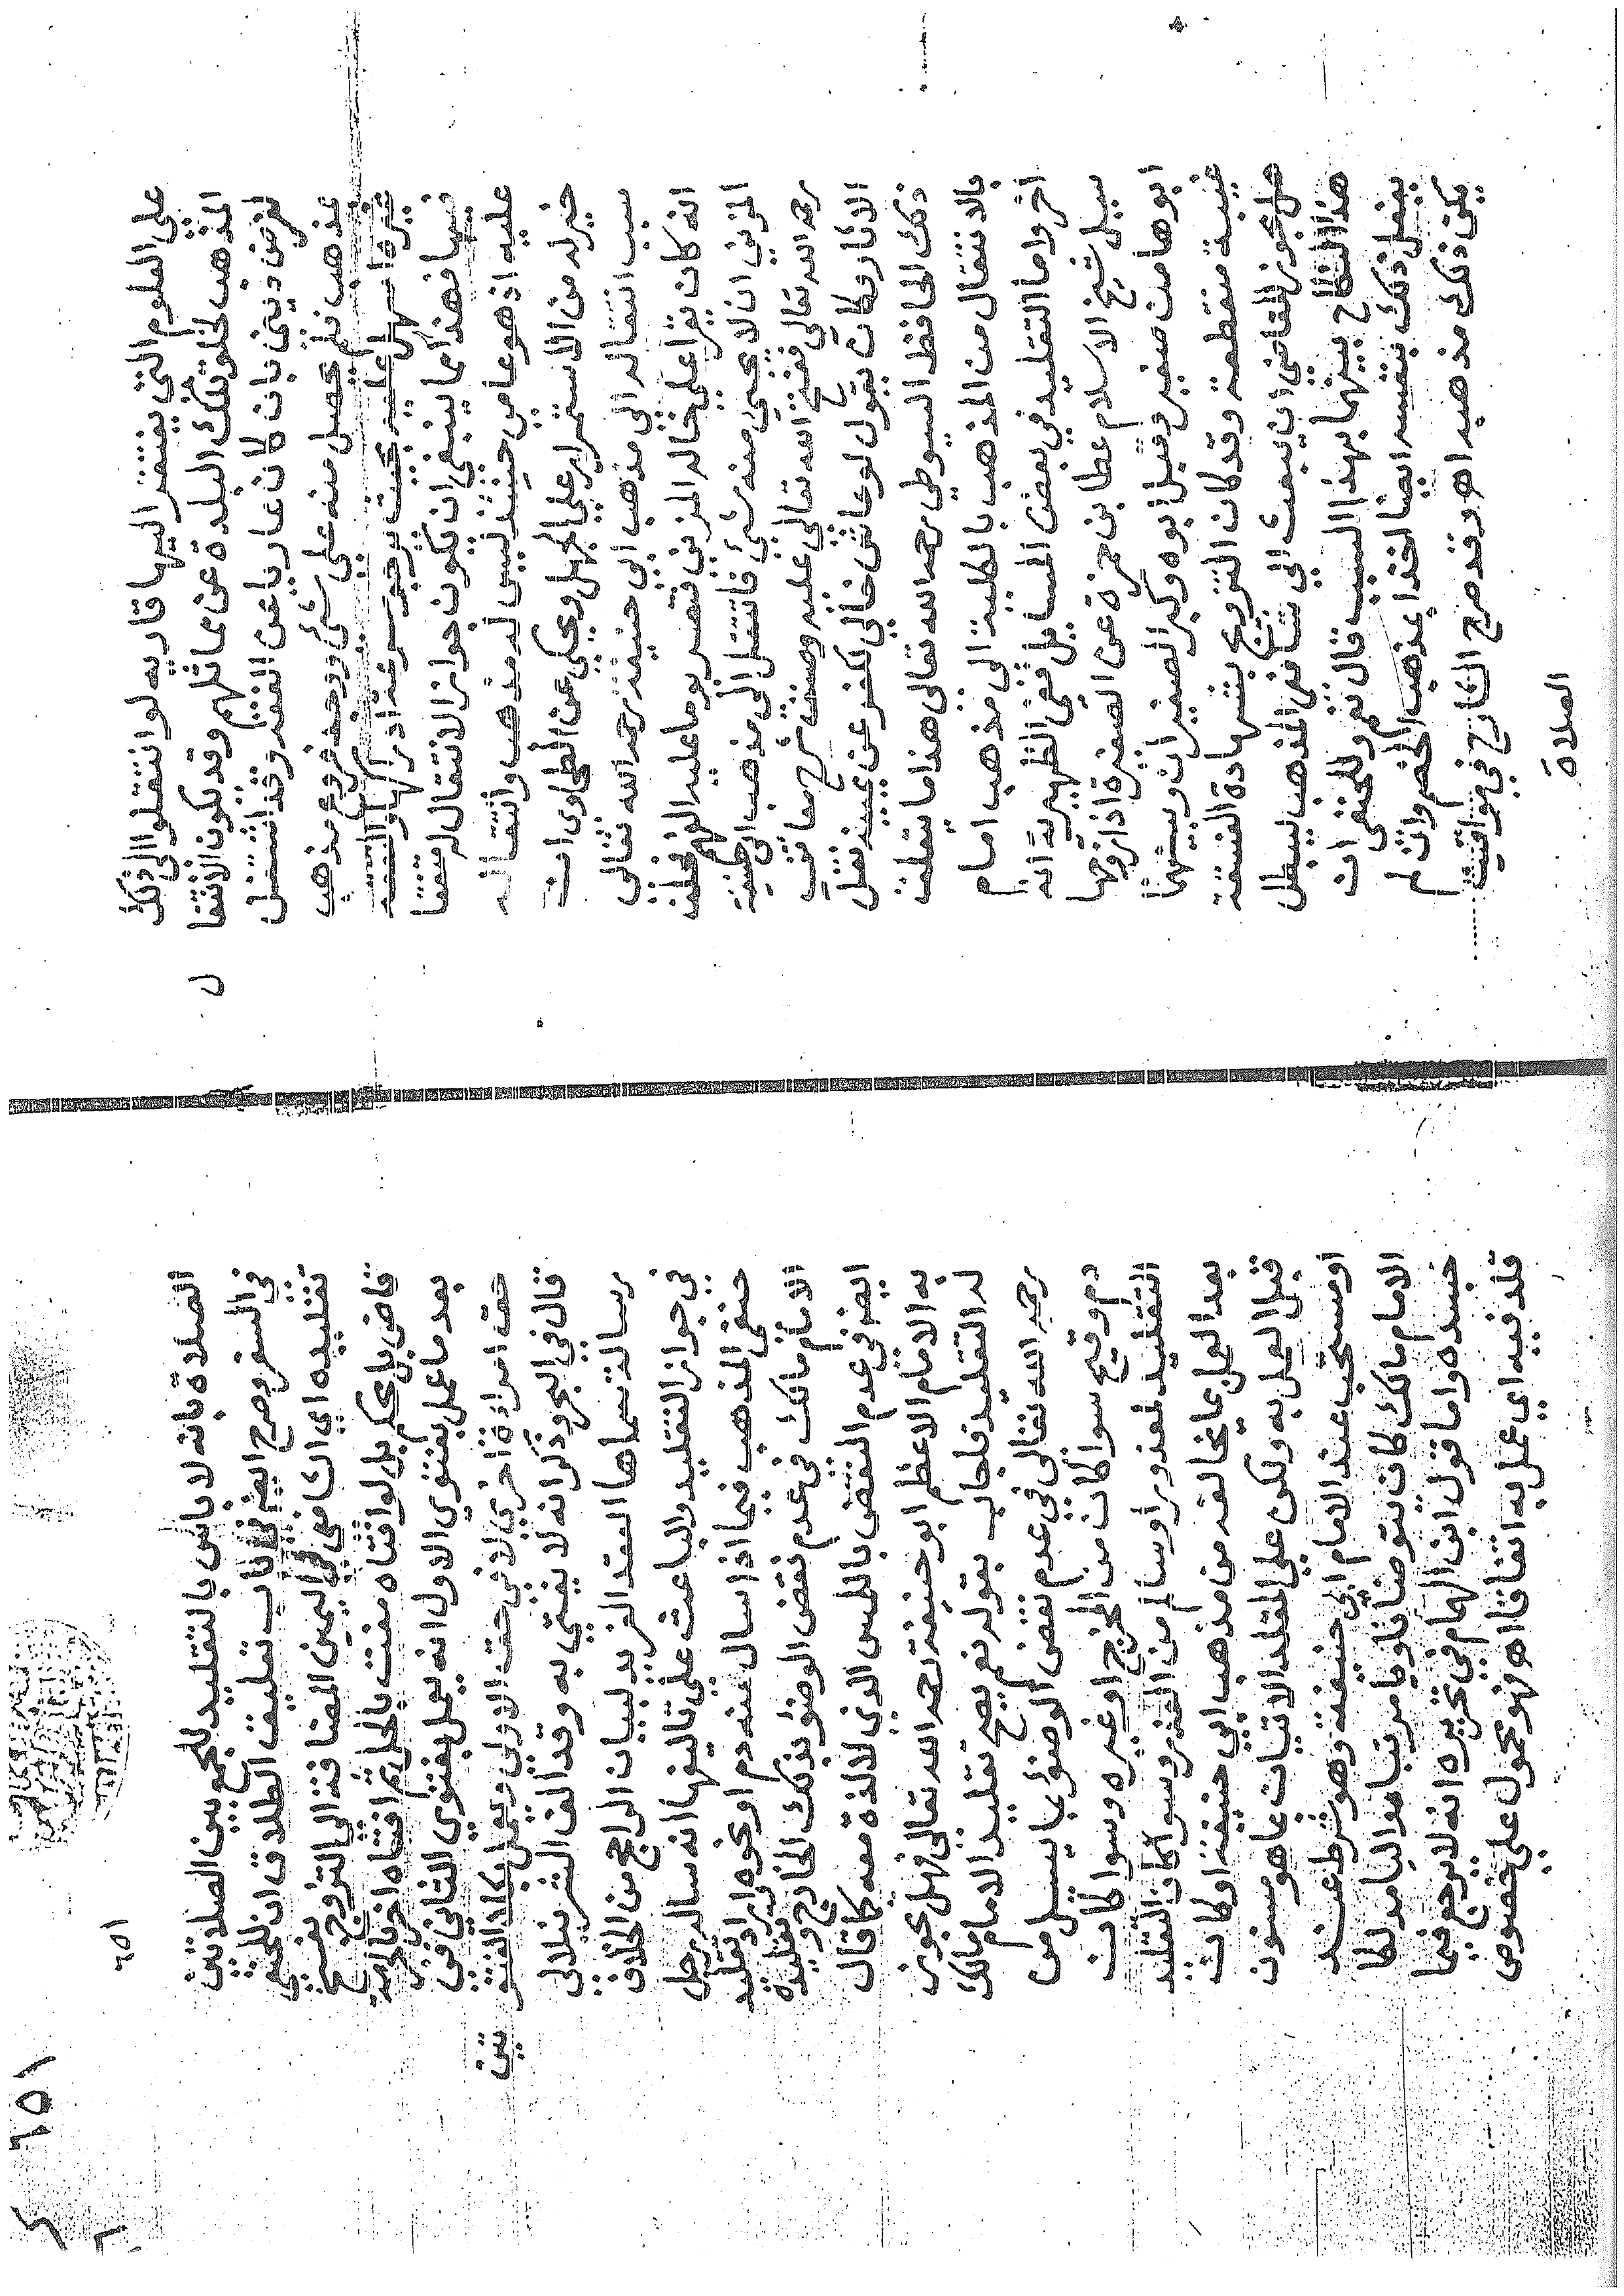 على العلوم التي يفتقر اليها قاريه لو انتقلوا الى ذلك
المذهب لخلو تلك البلدة عن مماثلهم وقد يكون الانتقا
ل
لغرض ديني بان كان عاريا عن الفقه وقد اشتغل
بمذهبه فلم يحصل منه على شئ ووجد فروع مذهب
غيره اسهل عليه بحيث يرجو سرعة ادراكها والتفقه
فيها فهذا مما ينبغي ان يكون جواز الانتقال له متفقا
عليه اذ هو عامي حينئذ ليس له مذهب وانتقاله
خير له من الاستمرار على الجهل ويحكى عن الطحاوى ان
سبب انتقاله الى مذهب ابي حنيفة رحمه الله تعالى
انه كان يقرا على خاله المزني فتعسر يوما عليه الفهم فحلف
المزني ان لا يجئ منه شئ فانتقل الى مذهب ابي حنيفة
رحمه الله تعالى ففتح الله تعالى عليه وصنف شرح معاني
الاثار وكان يقول لو عاش خالي لكفر عن يمينه نقل
ذلك الحافظ السيوطي رحمه الله تعالى هذا ما يتعلق
بالانتقال من المذهب بالكلية الى مذهب امام
اخر واما التقليد في بعض المسايل ففي الظهيرية انه
سيل شيخ الاسلام عطا بن حمزة عن الصغيرة اذا زوجها
ابوها من صغير وقبل ابوه وكبر الصغيران وبينهما
غيبة منقطعة وقد كان التزويج بشهادة الفسقة
هل يجوز للقاضي ان يبعث الى شافعي المذهب ليبطل
هذا النكاح بينهما بهذا السبب قال نعم وللحنفى ان
يفعل ذلك بنفسه ايضا اخذا بمذهب الخصم وان لم
يكن ذلك مذهبه اهـ وقد صرح الشارح في مواقيت
الصلاة
١٥١
٦٥١
الصلاة بانه لا باس بالتقليد للجمع بين الصلاتين
في السفر وصرح ايضا في باب تعليق الطلاق ان للحنفي
تقليده اي الشافعي في اليمين المضافة الى التزوج بفسخ
قاض بل محكم بل لو افتاه مفت بالحل ثم افتاه اخر بالحرمة
بعد ما عمل بفتوى الاول انه يعمل بفتوى الثاني في
حق امراة اخرى لا في حق الاولى ويعمل بكلا الفتو
يين
قال في البحر وذكر انه لا يفتي به وقد الف الشرنبلالى
رسالة سماها العقد الفريد لبيان الراجح من الخلاف
في جواز التقليد والباعث على تاليفها انه ساله رجل
حنفى المذهب فيما اذا سال منه دم او نحوه اراد تقليد
الامام مالك في عدم نقض الوضوء بذلك الخارج وتقليده
ايضا في عدم النقض باللمس الذى لا لذة معه كما قال
به الامام الاعظم ابو حنيفة رحمه الله تعالى فهل يجوز
له التقليد فاجاب بقوله نعم يصح تقليد الامام مالك
رحمه الله تعالى في عدم نقض الوضوء بما يسيل من
دم وقيح سوا كان من المخرج او غيره وسوا كان
التقليد لمعذور او سالم من العذر وسوا كان التقليد
بعد العمل بما يخالفه من مذهب ابي حنيفة او كان
قبل العمل به ولكن على المقلد الاتيان بما هو مسنون
او مستحب عند الامام ابي حنيفة وهو شرط عند
الامام مالك كان يتوضا ناويا مرتبا مدلكا
جسده واما قول ابن الهمام في تحريره انه لا يرجع فيما
قلد فيه اي عمل به اتفاقا اهـ فهو محمول على خصوص